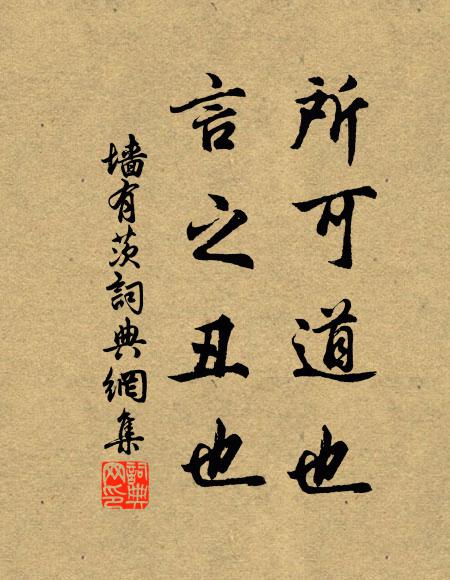 所可道也
言之丑也
墙有茨詞典網集
詞典网印